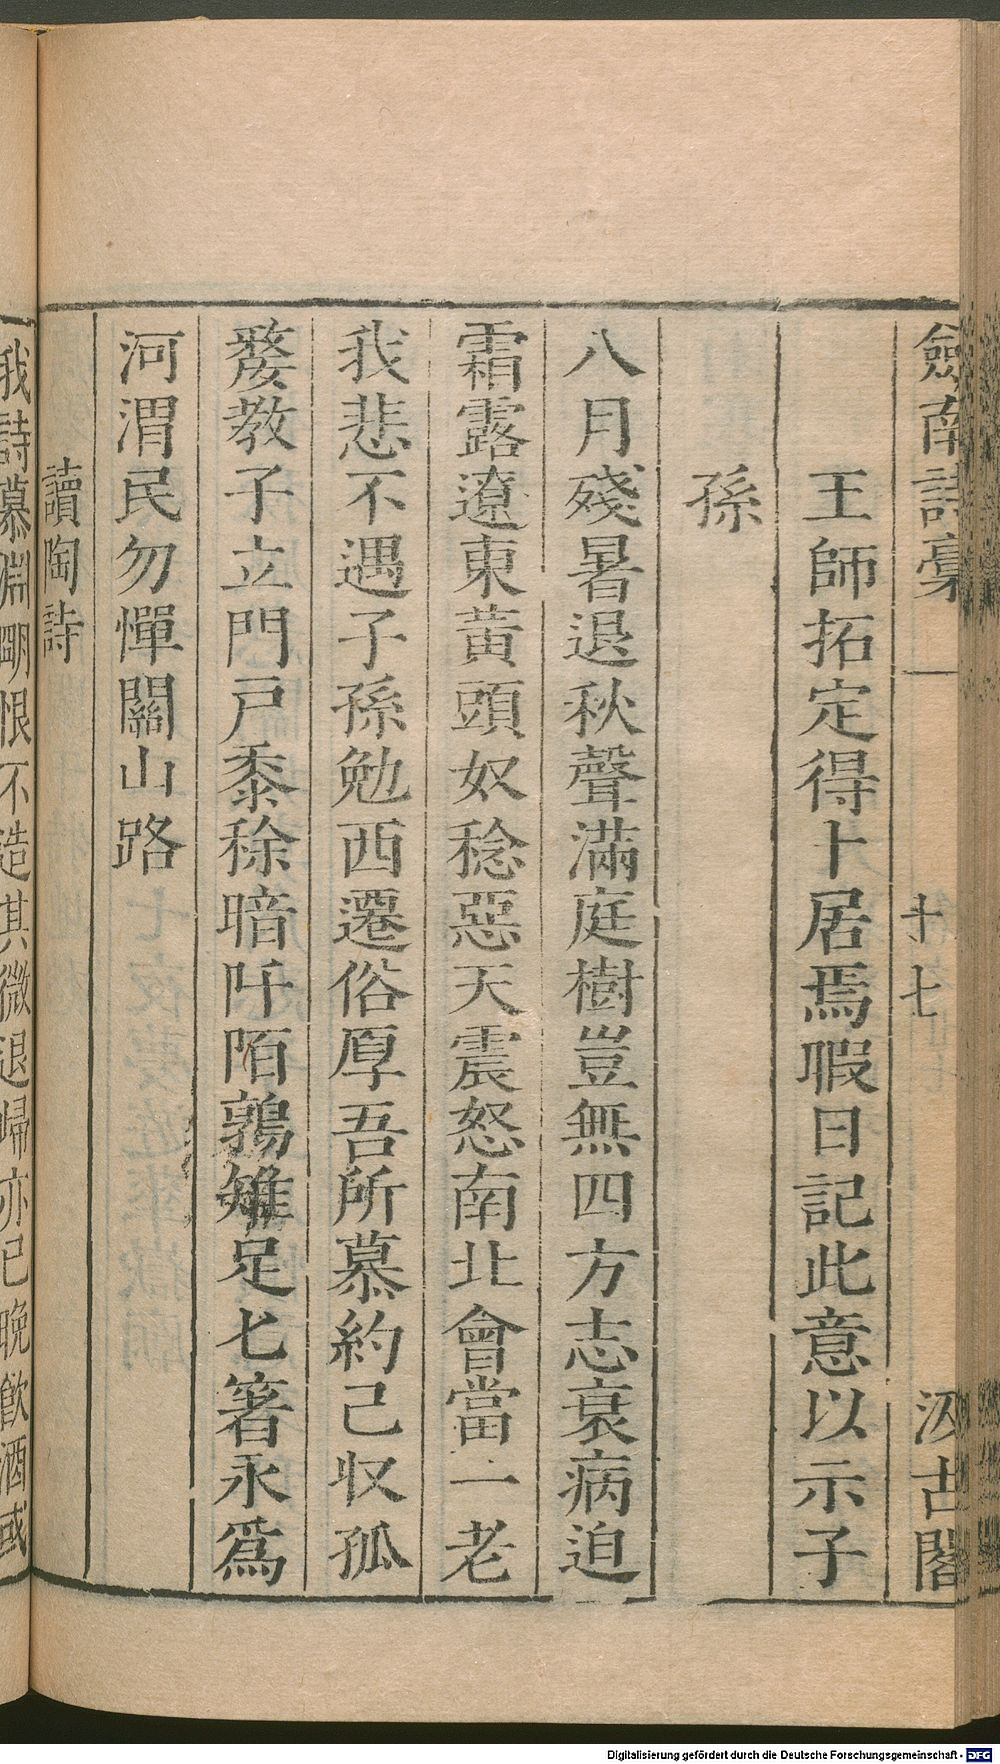 劍南詩稾 一 十七 汲古閣
王師拓定得卜居焉暇日記此意以示子
孫
八月殘暑退秋聲滿庭樹豈無四方志衰病迫
霜露遼東黃頭奴稔惡天震怒南北會當一老
我悲不遇子孫勉西遷俗厚吾所慕約己收孤
嫠教子立門戶黍稌暗阡陌鵝雉足匕箸永爲
河渭民勿憚關山路
讀陶詩
我詩慕淵明恨不造其微退歸亦已晚飮酒或
Digitalisierung gefördert durch die Deutsche Forschungsgemeinschaft - DFG